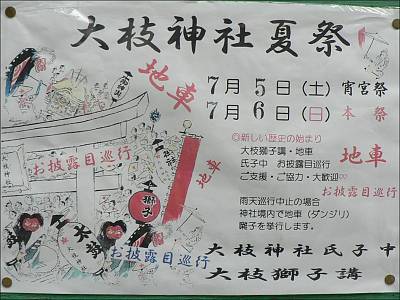 大枝神社夏祭
地車
7月5日(土) 宵宮祭
7月6日(日) 本祭
◎新しい歴史の始まり
大枝獅子講・地車
氏子中 お披露目巡行
ご支援・ご協力・大歓迎
地車
お披露目巡行
雨天巡行中止の場合
神社境内で地車(ダンジリ)
囃子を挙行します。
大枝神社氏子中
大枝獅子講
お披露目巡行
地車
獅子
太鼓
お披露目巡行